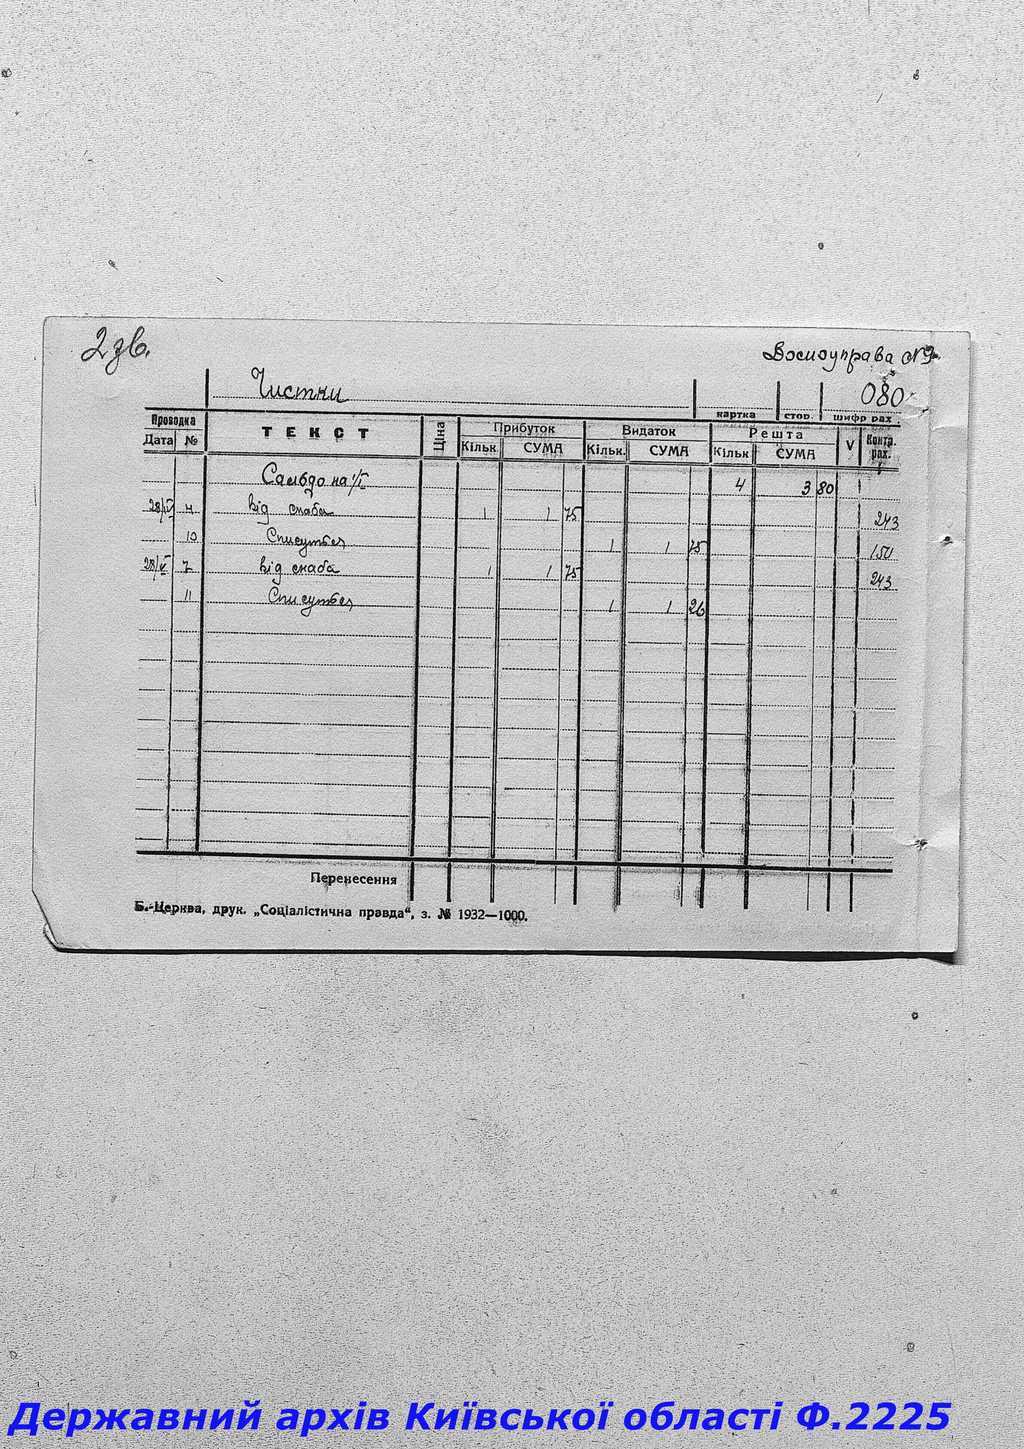 2 зв.
Чистки
080
картка стор. шифр рах.
Проводка
Дата № ТЕКСТ Ціна Прибуток Видаток Решта V Контр. рах.
Кільк. СУМА Кільк. СУМА Кільк. СУМА
Сальдо на 1/I 4 3 80
28/IV 4 від снаба 1 1 75 243
10 Списується 1 1 75 150
28/V 7 від снаба 1 1 75 243
11 Списується 1 1 26
Перенесення
Б.-Церква, друк. „Соціалістична правда“, з. № 1932—1000.
Державний архів Київської області Ф.2225